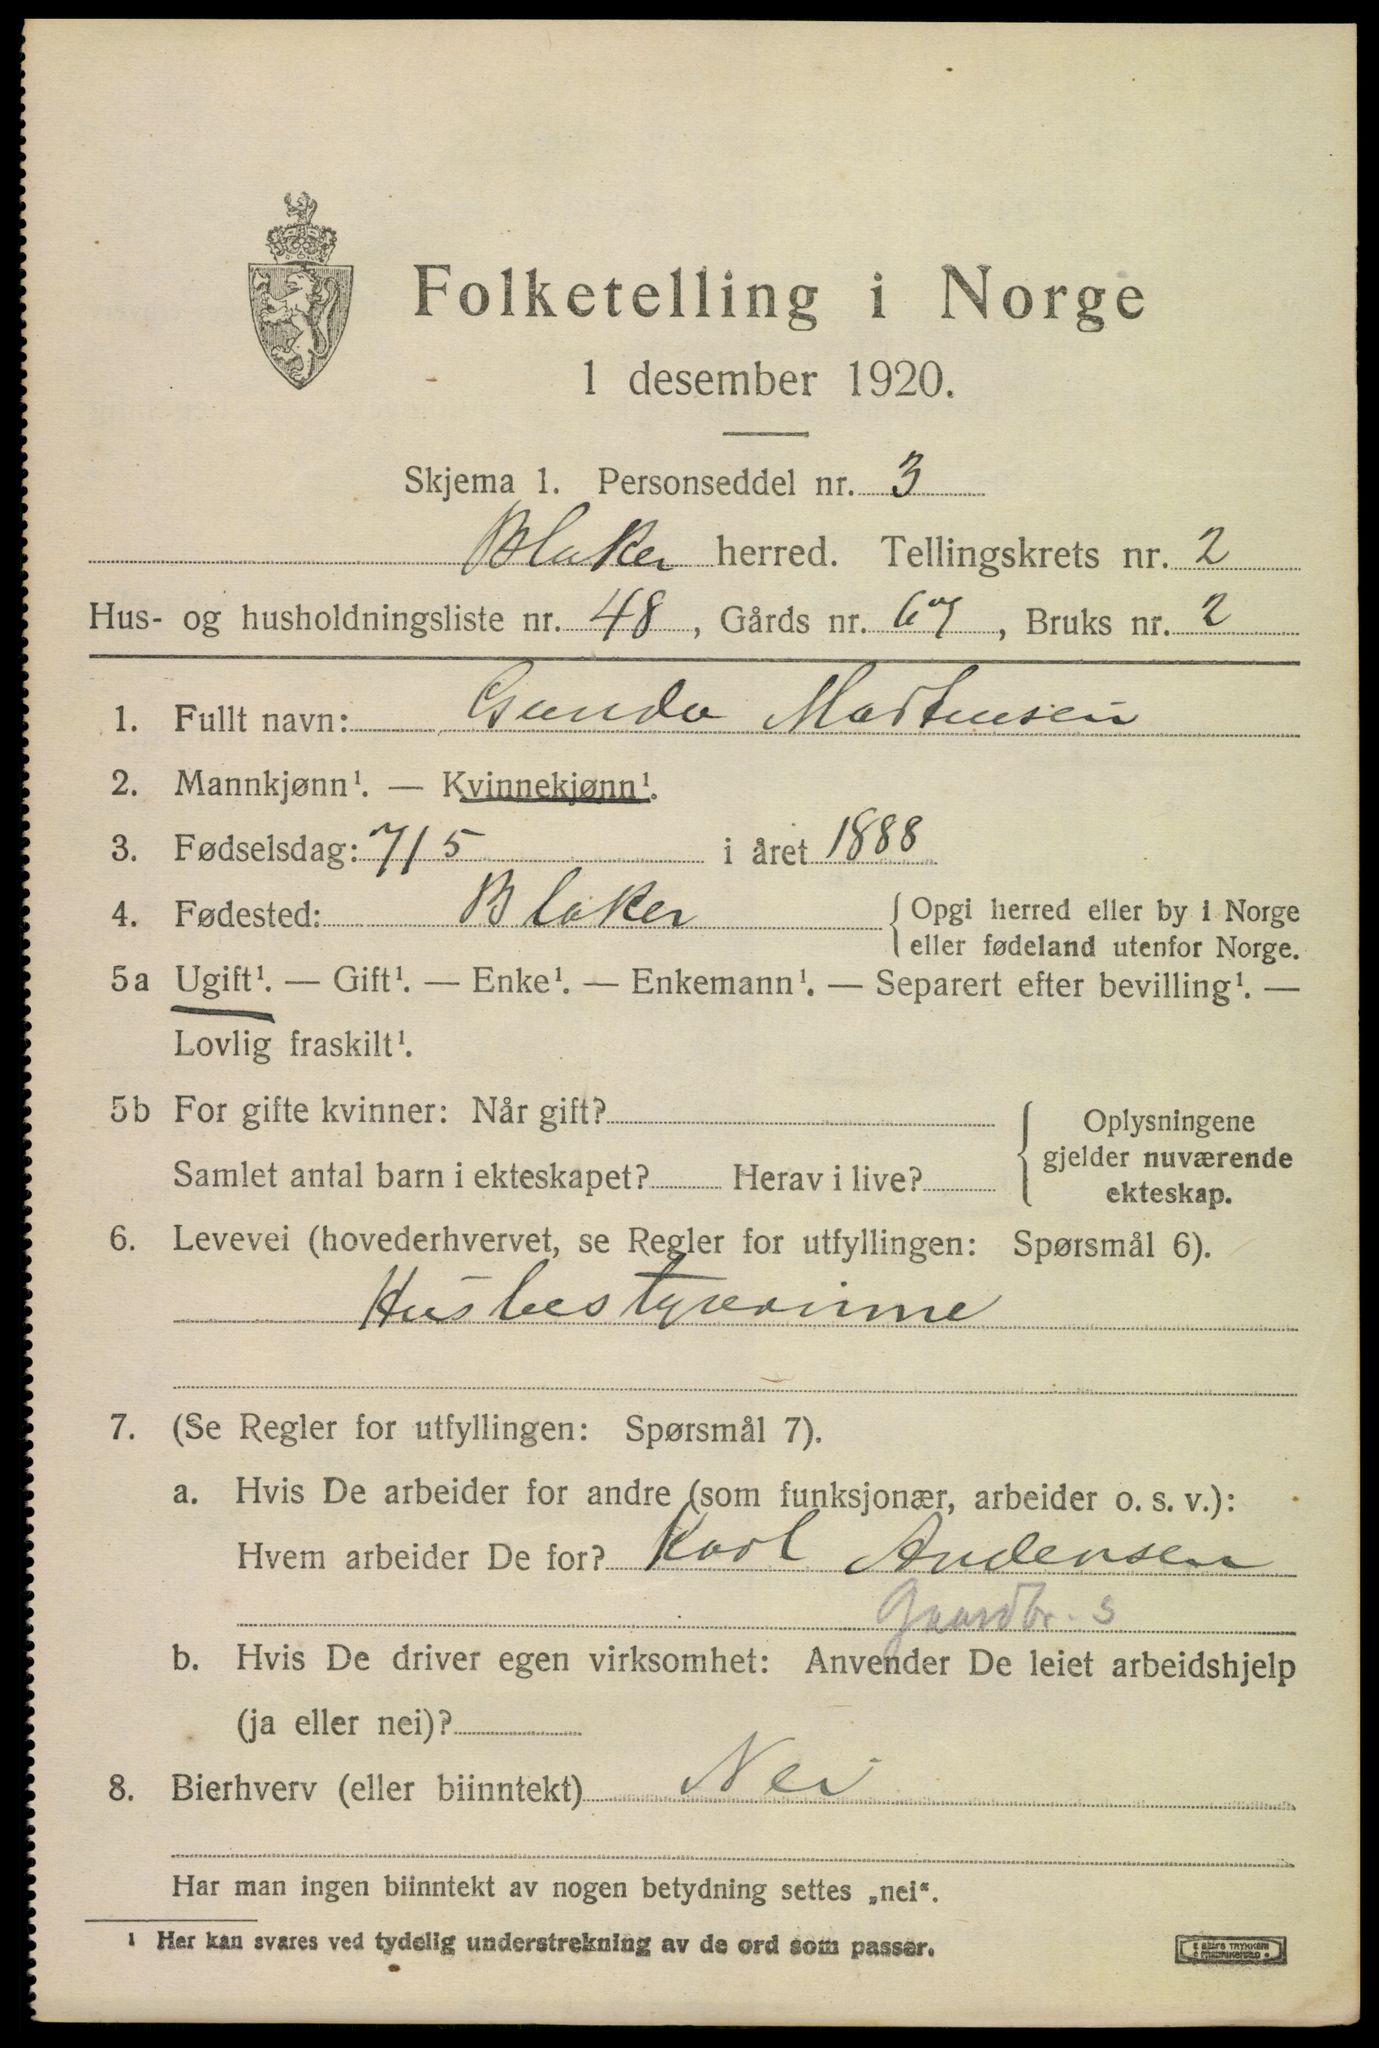 Folketelling i Norge
1 desember 1920.
Skjema 1. Personseddel nr. 3
Blaker herred. Tellingskrets nr. 2
Hus- og husholdningsliste nr. 48, Gårds nr. 67, Bruks nr. 2
1. Fullt navn: Gunda Martensen
2. Mannkjønn¹. — Kvinnekjønn¹.
3. Fødselsdag: 7/5 i året 1888
4. Fødested: Blaker { Opgi herred eller by i Norge
eller fødeland utenfor Norge.
5a Ugift¹. — Gift¹. — Enke¹. — Enkemann¹. — Separert efter bevilling¹. —
Lovlig fraskilt¹.
5b For gifte kvinner: Når gift? { Oplysningene
gjelder nuværende
ekteskap.
Samlet antal barn i ekteskapet? Herav i live?
6. Levevei (hovederhvervet, se Regler for utfyllingen: Spørsmål 6).
Husbestyrerinne
7. (Se Regler for utfyllingen: Spørsmål 7).
a. Hvis De arbeider for andre (som funksjonær, arbeider o. s. v.):
Hvem arbeider De for? Karl Andersen
Gaardbr. s
b. Hvis De driver egen virksomhet: Anvender De leiet arbeidshjelp
(ja eller nei)?
8. Bierhverv (eller biinntekt) Nei
Har man ingen biinntekt av nogen betydning settes „nei“.
¹ Her kan svares ved tydelig understrekning av de ord som passer.